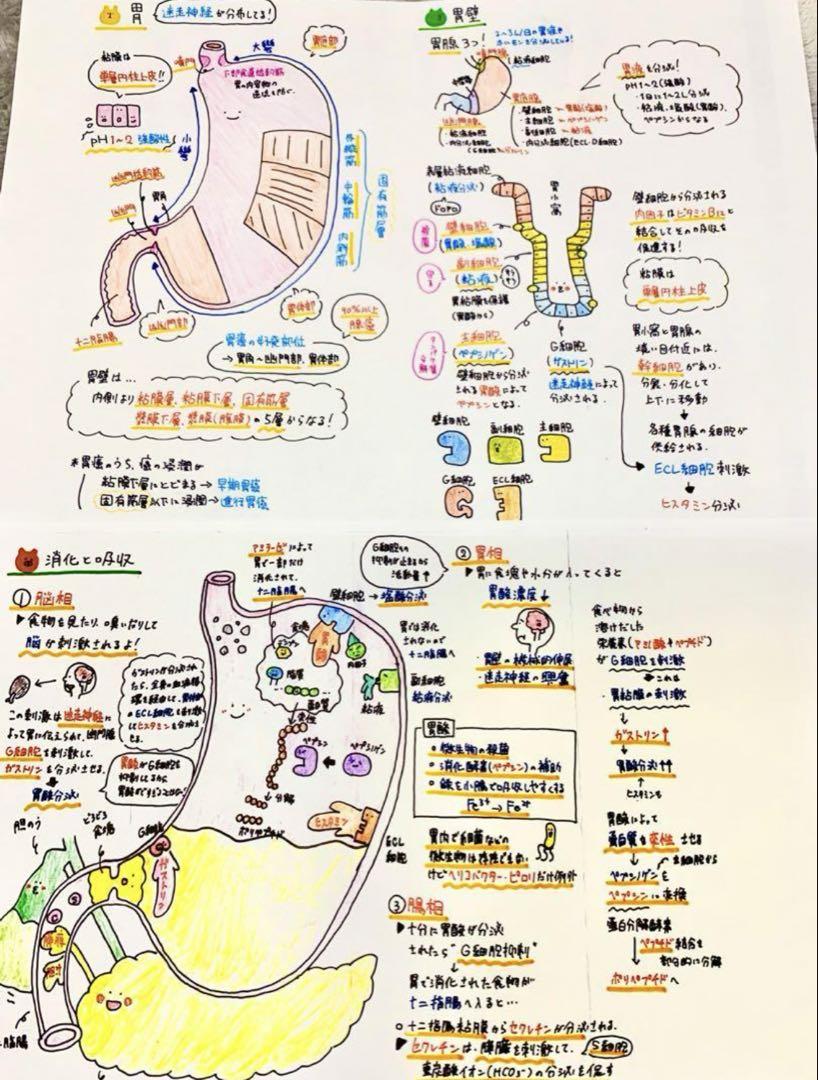 胃
迷走神経が分布してる!
粘膜は
単層円柱上皮!!
pH1~2 強酸性
噴門
大彎
胃底部
下部食道括約筋
胃の内容物の
逆流を防ぐ。
小彎
幽門括約筋
幽門
胃角
十二指腸
幽門部
胃体部
外縦筋
中輪筋
内斜筋
固有筋層
90%以上
腺癌
胃癌の好発部位
→胃角~幽門部、胃体部
胃壁は…
内側より粘膜層、粘膜下層、固有筋層
漿膜下層、漿膜(腹膜)の5層からなる!
*胃癌のうち、癌の浸潤が
粘膜下層にとどまる→早期胃癌
固有筋層以下に浸潤→進行胃癌
胃壁
胃腺3つ!
粘液細胞
胃底腺
・壁細胞→胃酸(塩酸)
・主細胞→ペプシノゲン
・副細胞→粘液
・内分泌細胞(ECL・D細胞)
幽門腺
・粘液細胞
胃液を分泌!
pH1~2(強酸)
・1日に1~2L分泌
・粘液、塩酸(胃酸)、
ペプシンからなる
表層粘液細胞
(粘液分泌)
胃小窩
壁細胞
(胃酸・塩酸)
副細胞
(粘液)
胃粘膜を保護
(胃酸から)
主細胞
(ペプシノゲン)
壁細胞から分泌
される胃酸によって
ペプシンとなる。
G細胞
(ガストリン)
迷走神経によって
分泌される。
壁細胞
副細胞
主細胞
G細胞
ECL細胞
壁細胞から分泌される
内因子はビタミンB12と
結合してその吸収を
促進する!
粘膜は
単層円柱上皮
胃小窩と胃腺の
境い目付近には、
幹細胞があり、
分裂・分化して
上下に移動
各種胃腺の細胞が
供給される。
ECL細胞刺激
ヒスタミン分泌
消化と吸収
① 脳相
▶食物を見たり、嗅いだりして
脳が刺激されるよ!
この刺激は迷走神経に
よって胃に伝えられて、幽門腺
G細胞を刺激して、
ガストリンを分泌させる。
胃酸分泌
ガストリンが分泌され
たら、全身の血液循
環を経由して、胃体部
のECL細胞を刺激
してヒスタミンを分泌さ
せる。
胃酸がG細胞を
抑制してるから
胆のう
どろどろ
食塊
G細胞
ガストリン
アミラーゼによって
胃で一部だけ
消化されて、
十二指腸へ
G細胞の
抑制が止まるから
活動量↑
壁細胞→塩酸分泌
食塊
胃酸
内因子
デンプン
脂質
蛋白質
変性
ペプシン
ペプシノゲン
分解
ポリペプチド
ヒスタミン
ECL
細胞
胃では消化
されないので
十二指腸へ
副細胞
粘液分泌
粘液
膵液
胆汁
② 胃相
▶胃に食塊や水分が入ってくると
胃酸濃度↓
・胃壁の機械的伸展
・迷走神経の興奮
胃酸
・微生物の殺菌
・消化酵素(ペプシン)の補助
・鉄を小腸で吸収しやすくする
Fe³⁺→Fe²⁺
胃内で細菌などの
微生物は存在できない
けどヘリコバクター・ピロリだけ例外
食べ物から
溶けだした
栄養素(アミノ酸+ペプチド)
がG細胞を刺激
これは
・胃粘膜の刺激
ガストリン↑
胃酸分泌↑↑
胃酸によって
蛋白質を変性させる
主細胞から
ペプシノゲンを
ペプシンに変換
蛋白分解酵素
ペプチド結合を
部分的に分解
ポリペプチドへ
③ 腸相
▶十分に胃酸が分泌
されたら"G細胞抑制"
胃で消化された食物が
十二指腸へ入ると…
○十二指腸粘膜からセクレチンが分泌される。
▶セクレチンは、膵臓を刺激して、S細胞
重炭酸イオン(HCO₃⁻)の分泌を促す